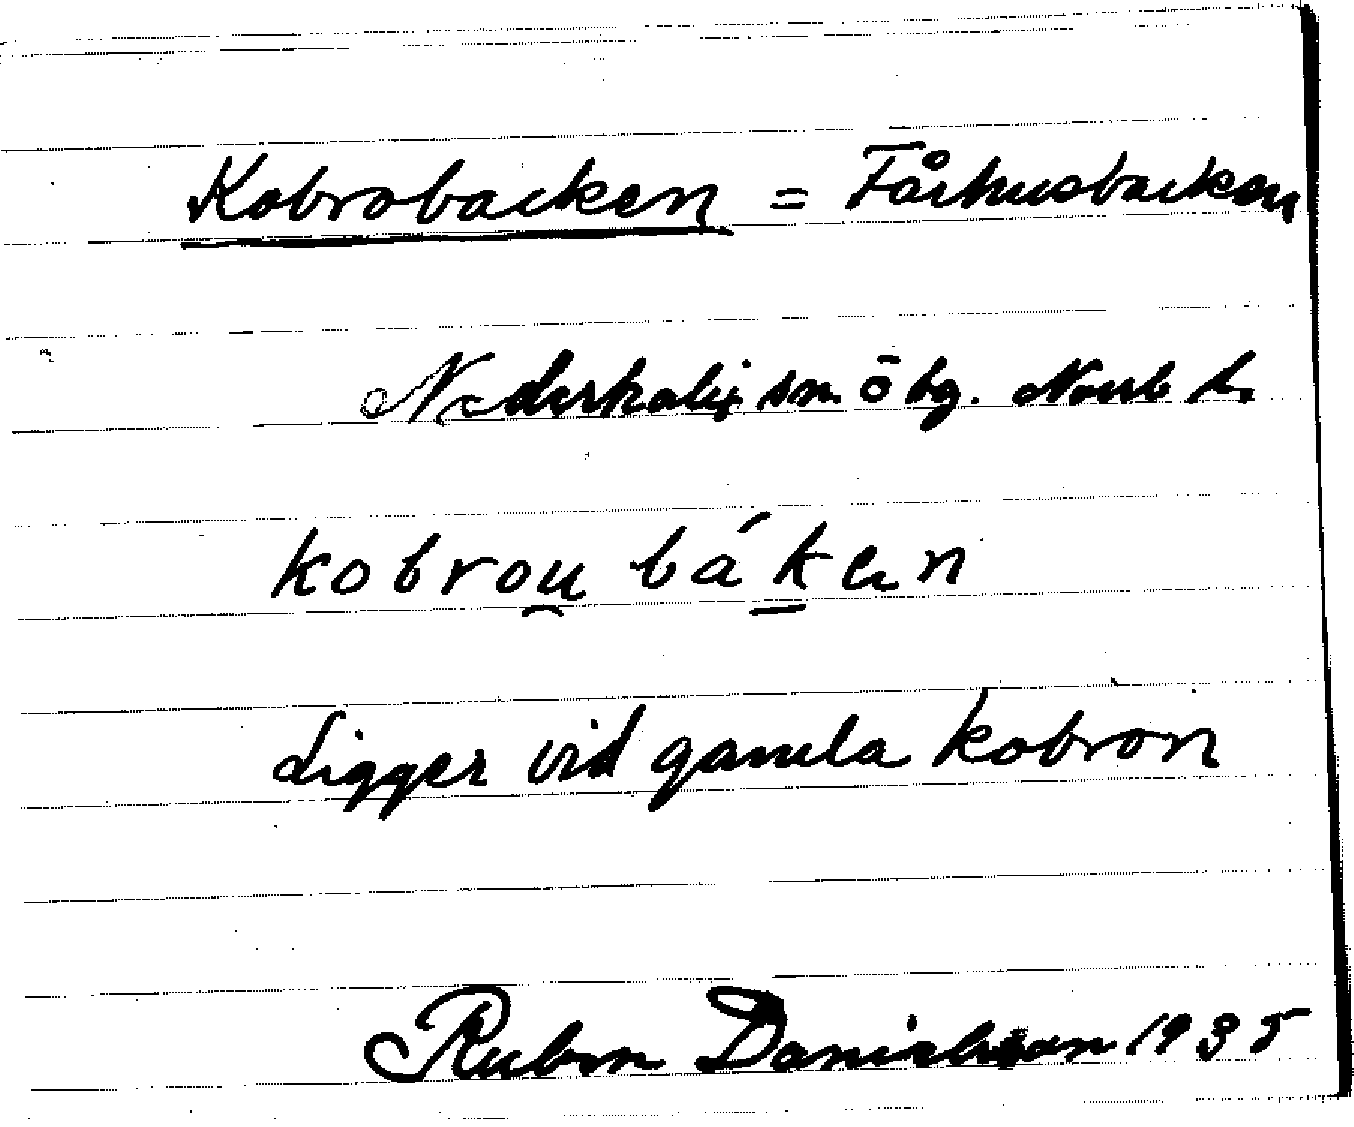 Kobrobacken = Fårhusbacken
Nederkalix sn ö bg. Norrb l.
kobrou̯ báḵen
Ligger vid gamla kobron
Ruben Danielsson 1935